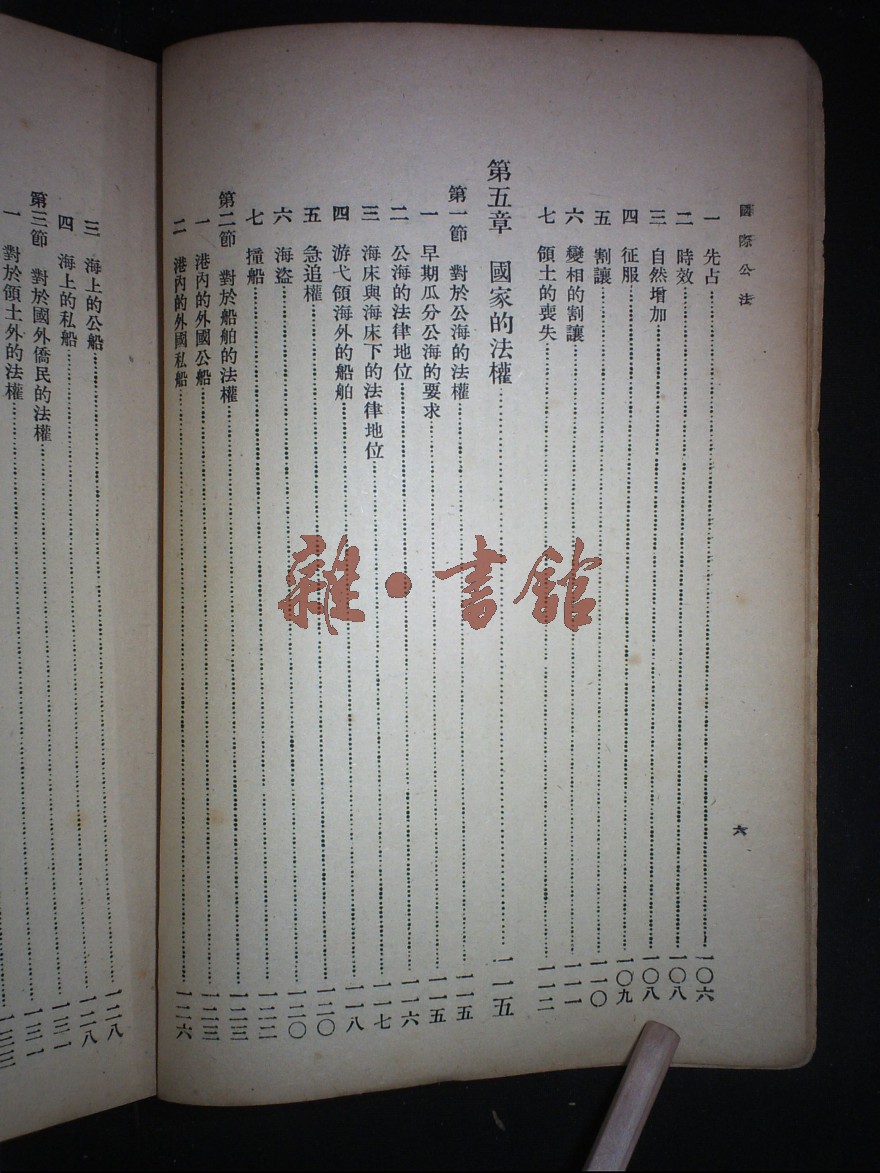 國際公法
六
一 先占……一〇六
二 時效……一〇八
三 自然增加……一〇八
四 征服……一〇九
五 割讓……一一〇
六 變相的割讓……一一一
七 領土的喪失……一一二
第五章 國家的法權……一一五
第一節 對於公海的法權……一一五
一 早期瓜分公海的要求……一一五
二 公海的法律地位……一一六
三 海床與海床下的法律地位……一一七
四 游弋領海外的船舶……一一八
五 急追權……一二〇
六 海盜……一二〇
七 撞船……一二二
第二節 對於船舶的法權……一二三
一 港內的外國公船……一二三
二 港內的外國私船……一二六
三 海上的公船……一二八
四 海上的私船……一二八
第三節 對於國外僑民的法權……一三一
一 對於領土外的法權……一三一
一三三
雜·書館